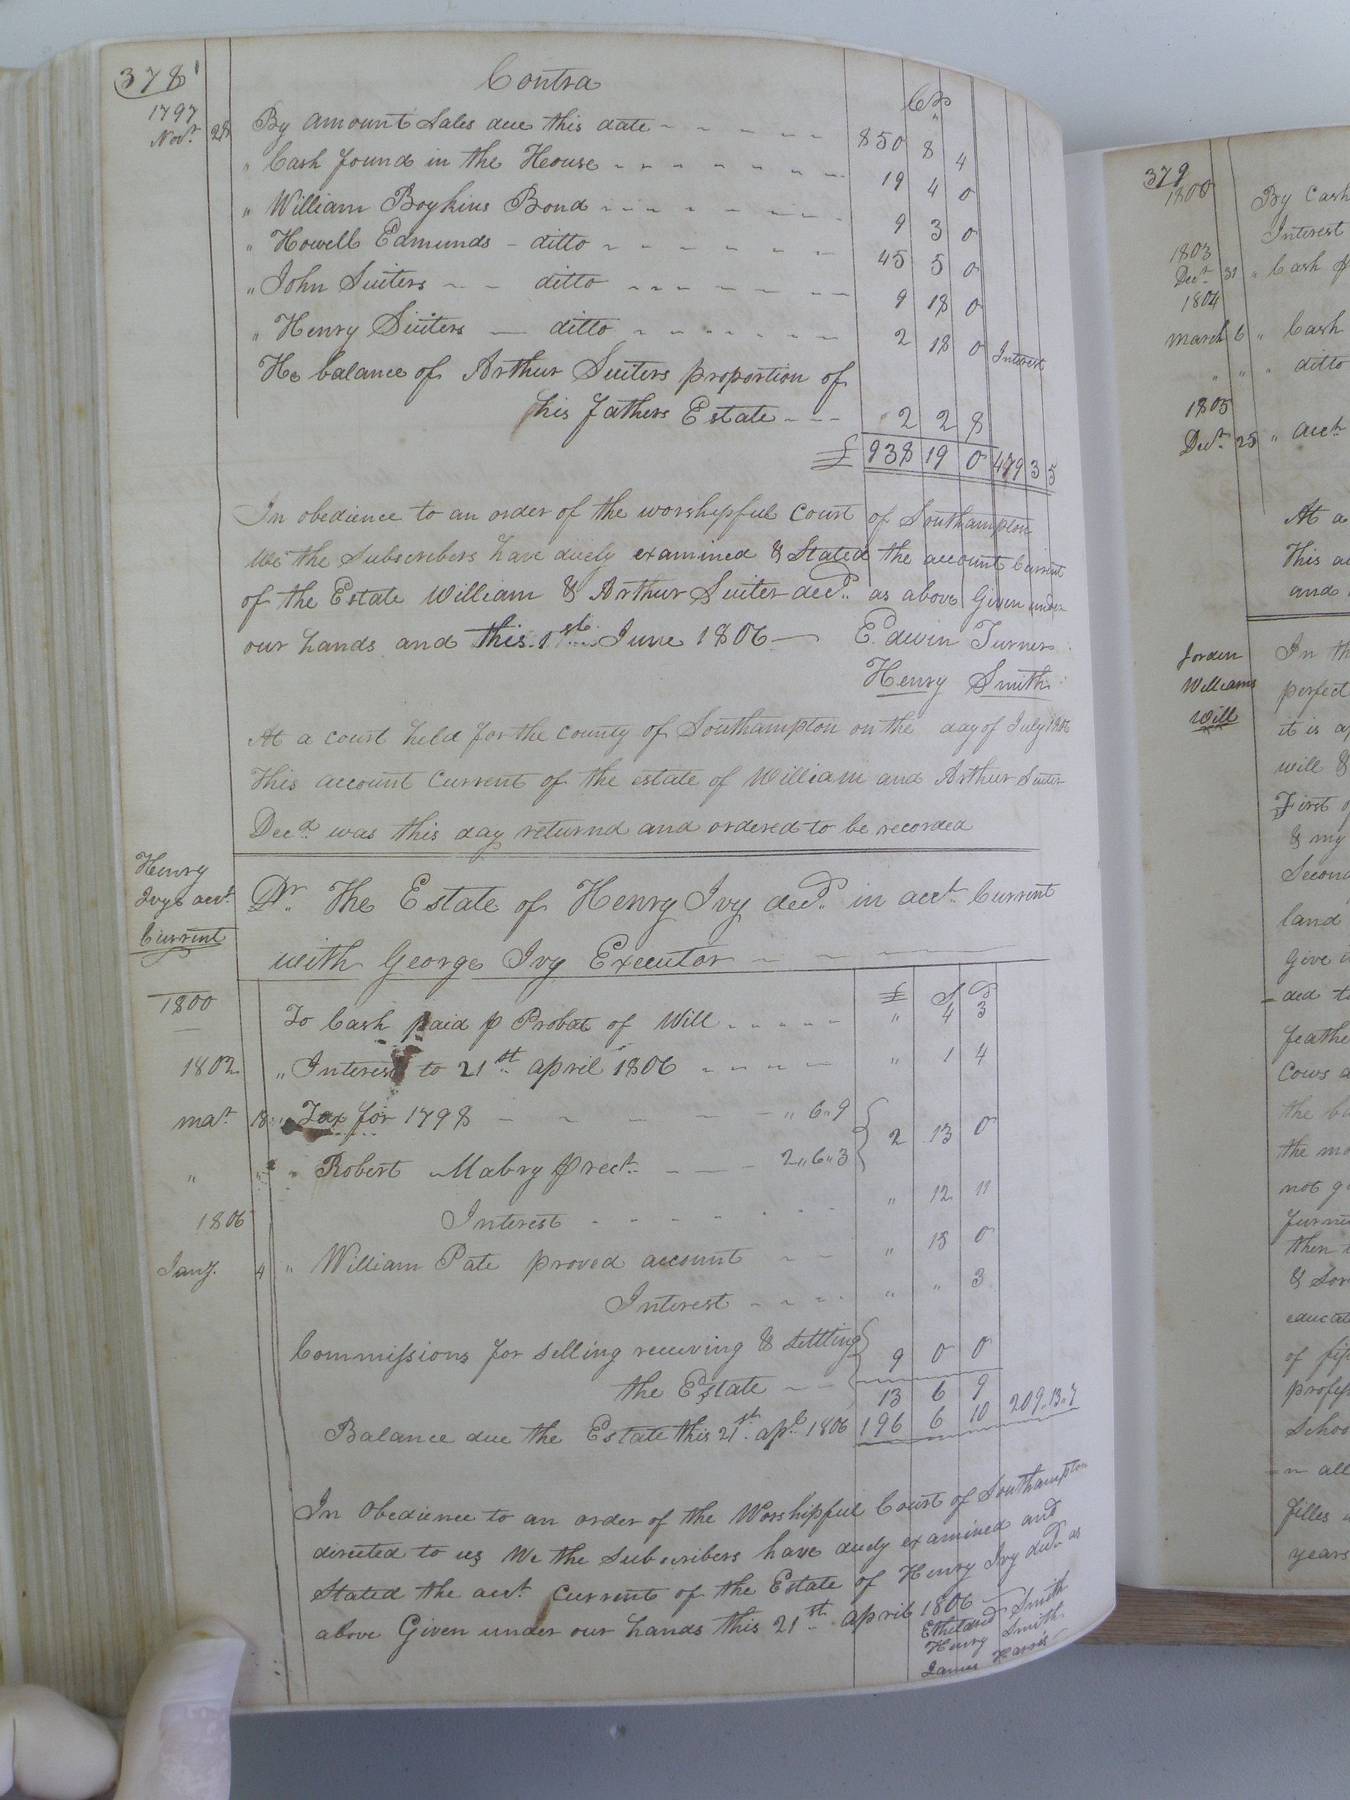 378
Contra
Cr
1797
Novr. 28 By amount Sales due this date 850 8 4
" Cash found in the House 19 4 0
" William Boykins Bond 9 3 0
" Howell Edmunds - ditto 45 5 0
" John Suiters - - ditto 9 18 0
" Henry Suiters - ditto 2 18 0 Interest
He balance of Arthur Suiters proportion of
his fathers Estate 2 2 8
£ 938 19 0 479 3 5
In obedience to an order of the worshipful court of Southampton
We the Subscribers have duely examined & Stated the account Current
of the Estate William & Arthur Suiter decd. as above Given under
our hands and this 1st June 1806 Edwin Turner
Henry Smith
At a court held for the county of Southampton on the day of July 1806
This account Current of the estate of William and Arthur Suiter
Decd was this day returnd and ordered to be recorded
Henry
Ivys acct.
Current
Dr. The Estate of Henry Ivy decd. in acct. Current
with George Ivy Executor
£ S D
1800 To Cash paid p Probat of Will " 4 3
1802 " Interest to 21st april 1806 " 1 4
mat 18 " Tax for 1798 " 6 " 9
" " " Robert Mabry p rect. 2 " 6 " 3 2 13 0
Interest " 12 11
1806
Jany. 4 " William Pate proved account " 18 0
Interest " " 3
Commissions for selling receiving & settling
the Estate 9 0 0
13 6 9
Balance due the Estate this 21st. apl. 1806 196 6 10 209.13.7
In Obedience to an order of the Worshipful Court of Southampton
directed to us We the Subscribers have duely examined and
Stated the acct. Current of the Estate of Henry Ivy decd. as
above Given under our hands this 21st. april 1806
Etheldred Smith
Henry Smith
James Harris
379
1800 By Cash
Interest
1803
Decr. 31 " Cash
1804
march 6 " Cash
" " " ditto
1805
Decr. 25 " acct.
At a
This
and
Jorden
Williams
Will
In th
perfect
it is
will &
First
& my
Second
land
give
ded
feathe
Cows
the
the
not
then
&
of
years